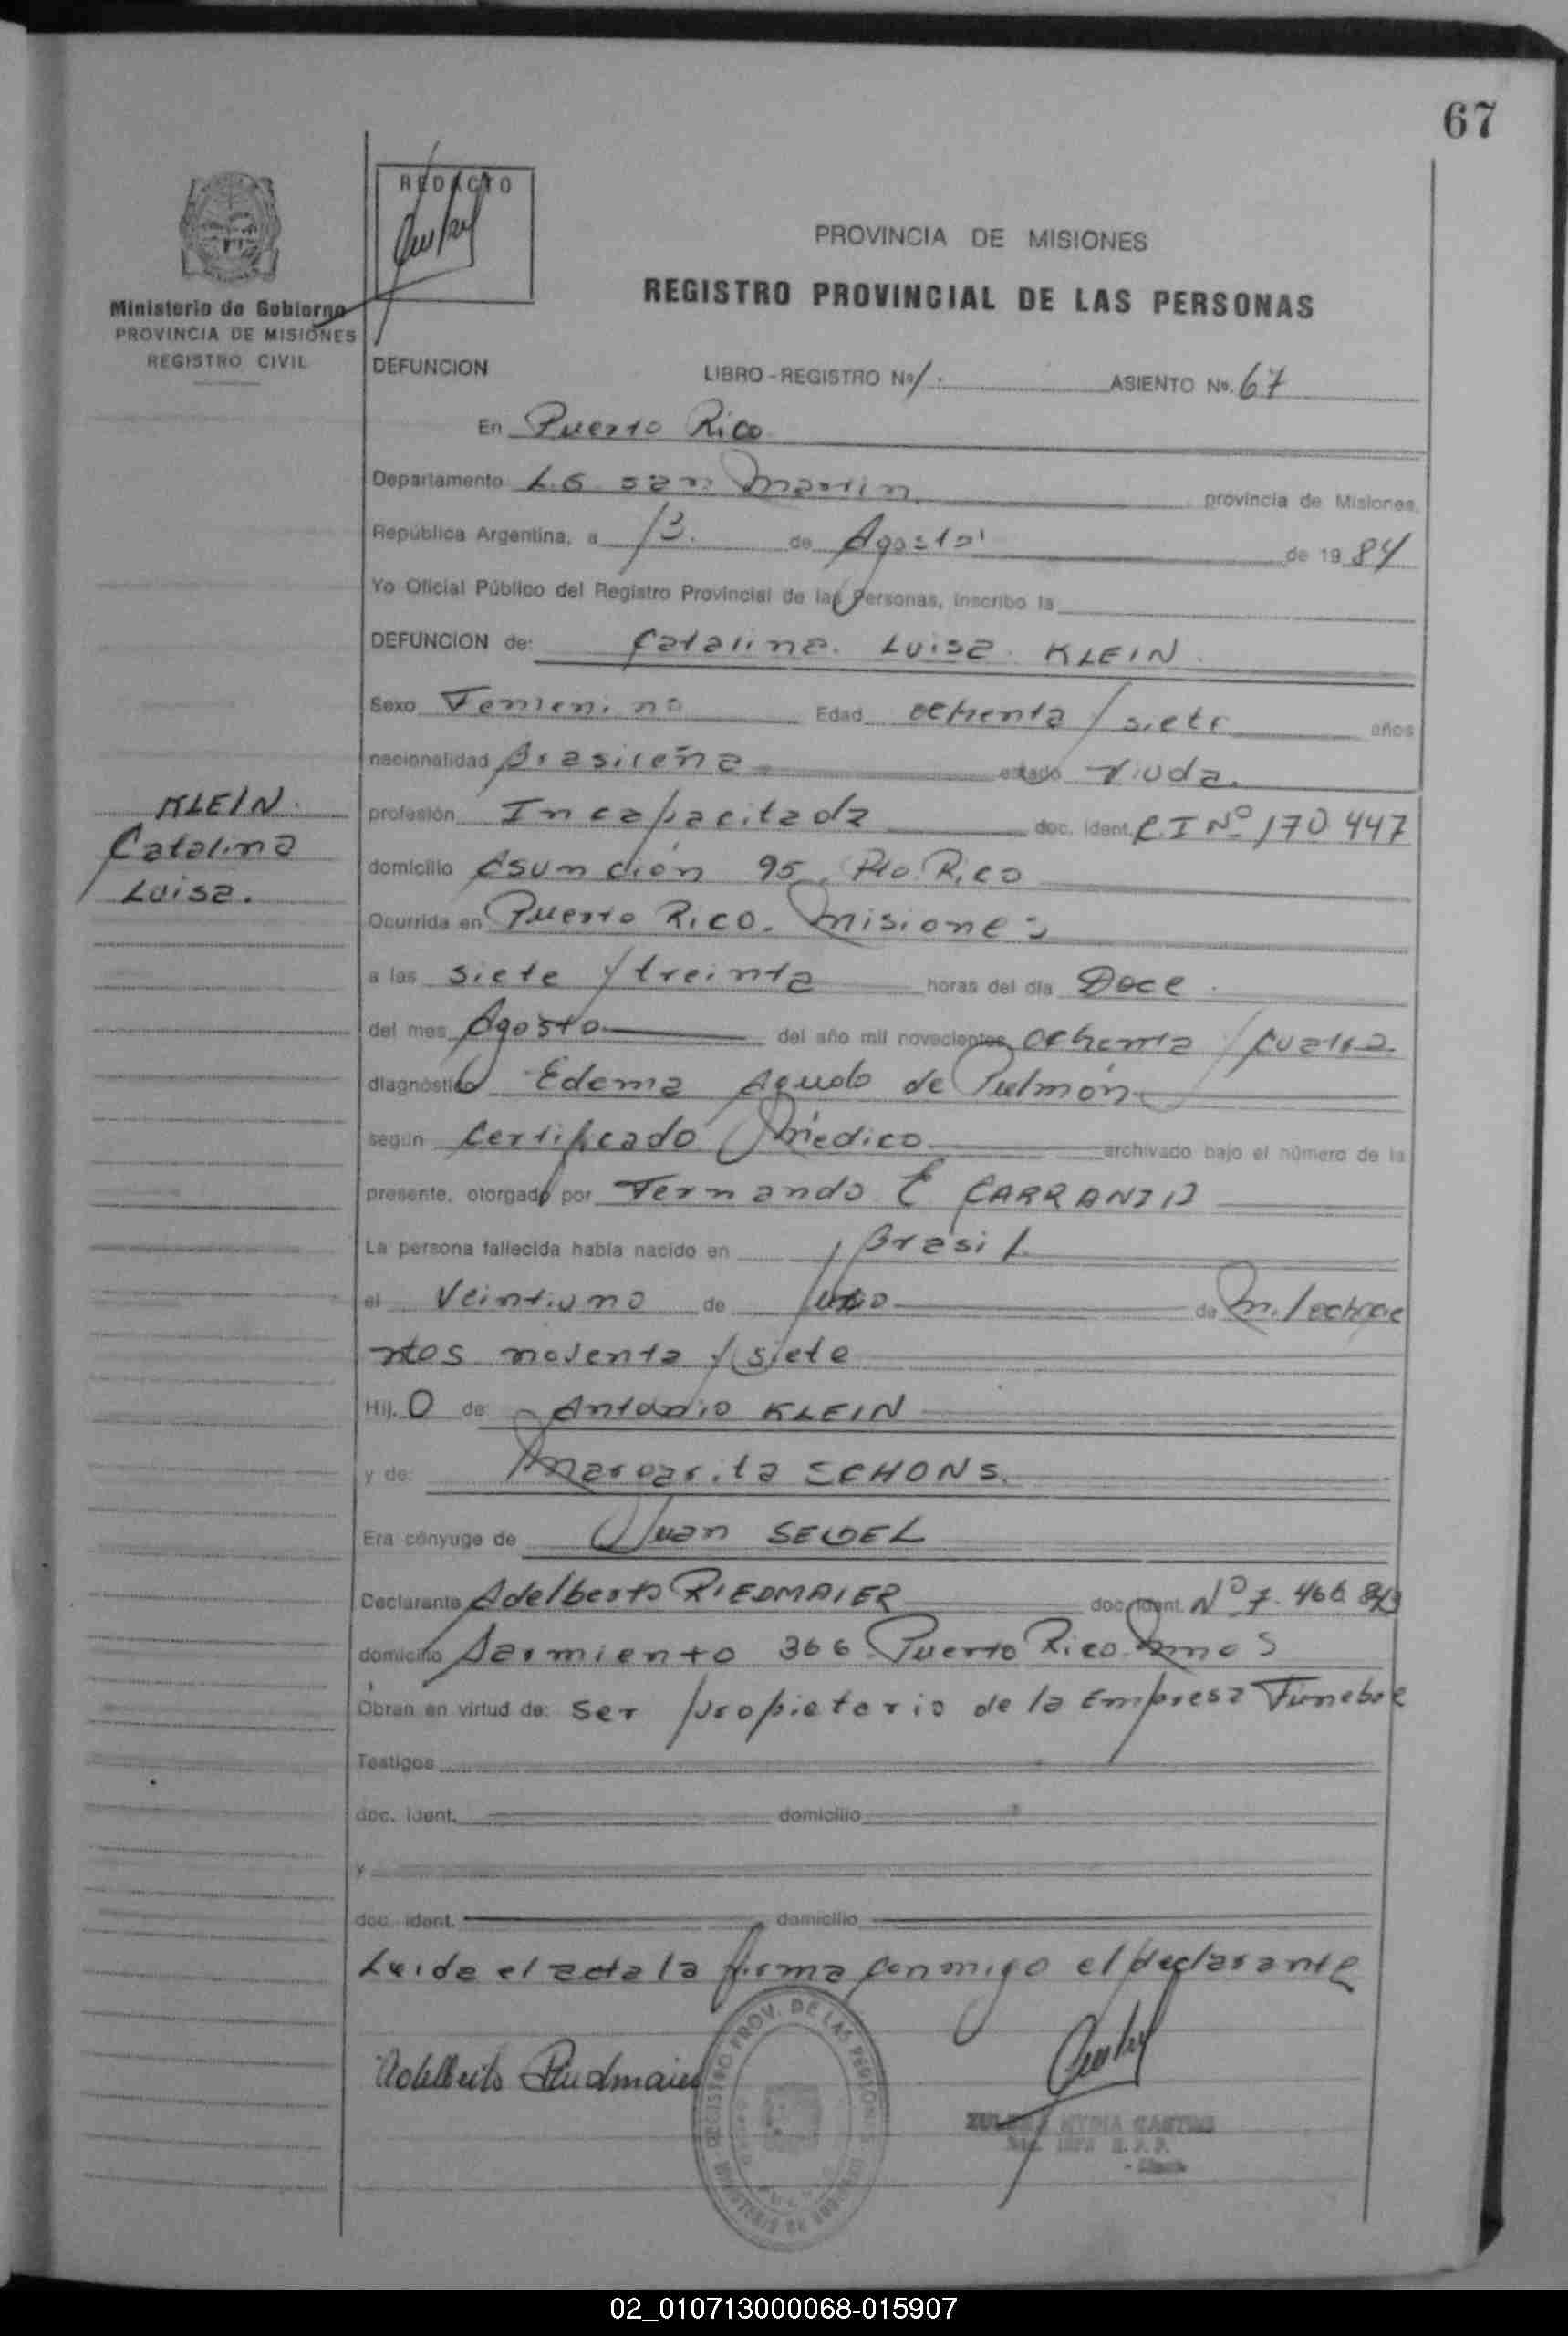 67
REDACTO
Ministerio de Gobierno
PROVINCIA DE MISIONES
REGISTRO CIVIL
PROVINCIA DE MISIONES
REGISTRO PROVINCIAL DE LAS PERSONAS
DEFUNCION LIBRO-REGISTRO Nº 1. ASIENTO Nº. 67
En Puerto Rico
Departamento L.G san Martin provincia de Misiones,
República Argentina, a 13. de Agosto de 19 84
Yo Oficial Público del Registro Provincial de las Personas, inscribo la
DEFUNCION de: Catalina Luisa KLEIN
Sexo Femenino Edad ochenta y siete años
nacionalidad Brasileña estado viuda.
KLEIN.
Catalina
Luisa.
profesión Incapacitada doc. ident. C.I Nº 170 447
domicilio Asunción 95. Pto. Rico
Ocurrida en Puerto Rico. Misiones
a las siete y treinta horas del día Doce.
del mes Agosto del año mil novecientos ochenta y cuatro
diagnóstico Edema Agudo de Pulmón
según Certificado Médico archivado bajo el número de la
presente, otorgado por Fernando E
La persona fallecida había nacido en Brasil
el Veintiuno de de Mil ochocie
ntos noventa y siete
Hij. O de Antonio KLEIN
y de: Margarita SCHONS.
Era cónyuge de Juan
Declarante Adelberto RIEDMAIER doc. ident. Nº 7. 466
domicilio Sarmiento 366 Puerto Rico Mnes
Obran en virtud de: Ser propietario de la Empresa Fúnebre
Testigos
doc. ident. domicilio
y
doc. ident. domicilio
Leida el acta la firma conmigo el declarante
Adelberto Riedmaier
REGISTRO PROV. DE LAS PERSONAS
MINISTERIO DE GOBIERNO
02_010713000068-015907